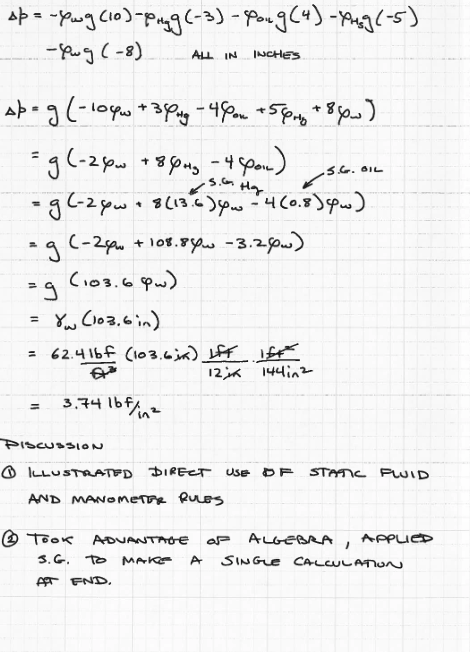 Δp = -ρwg(10) - ρHgg(-3) - ρOILg(4) - ρHgg(-5)
-ρwg(-8) ALL IN INCHES
Δp = g(-10ρw + 3ρHg - 4ρOIL + 5ρHg + 8ρw)
= g(-2ρw + 8ρHg - 4ρOIL)
S.G. Hg S.G. OIL
= g(-2ρw + 8(13.6)ρw - 4(0.8)ρw)
= g(-2ρw + 108.8ρw - 3.2ρw)
= g(103.6ρw)
= γw(103.6in)
= 62.4 lbf/ft³ (103.6in) 1ft/12in · 1ft²/144in²
= 3.74 lbf/in²
DISCUSSION
① ILLUSTRATED DIRECT USE OF STATIC FLUID
AND MANOMETER RULES
② TOOK ADVANTAGE OF ALGEBRA, APPLIED
S.G. TO MAKE A SINGLE CALCULATION
AT END.